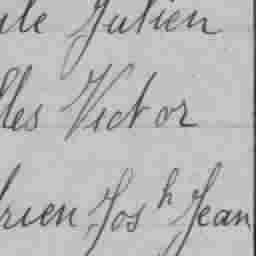 ule Julien
lles Victor
rien Jos h Jean